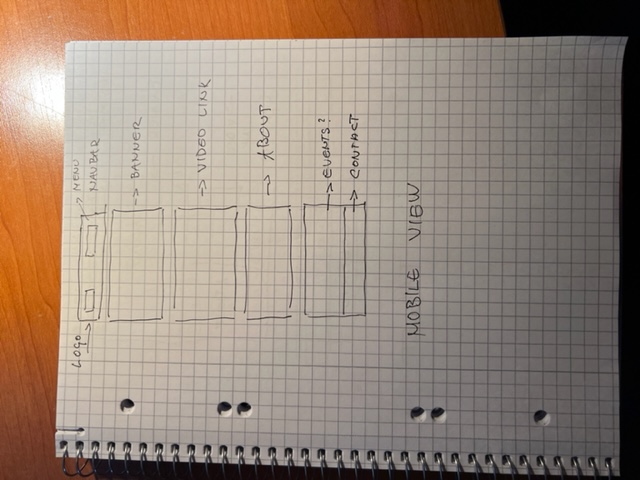 LOGO
MENU
NAVBAR
BANNER
VIDEO LINK
ABOUT
EVENTS?
CONTACT
MOBILE VIEW